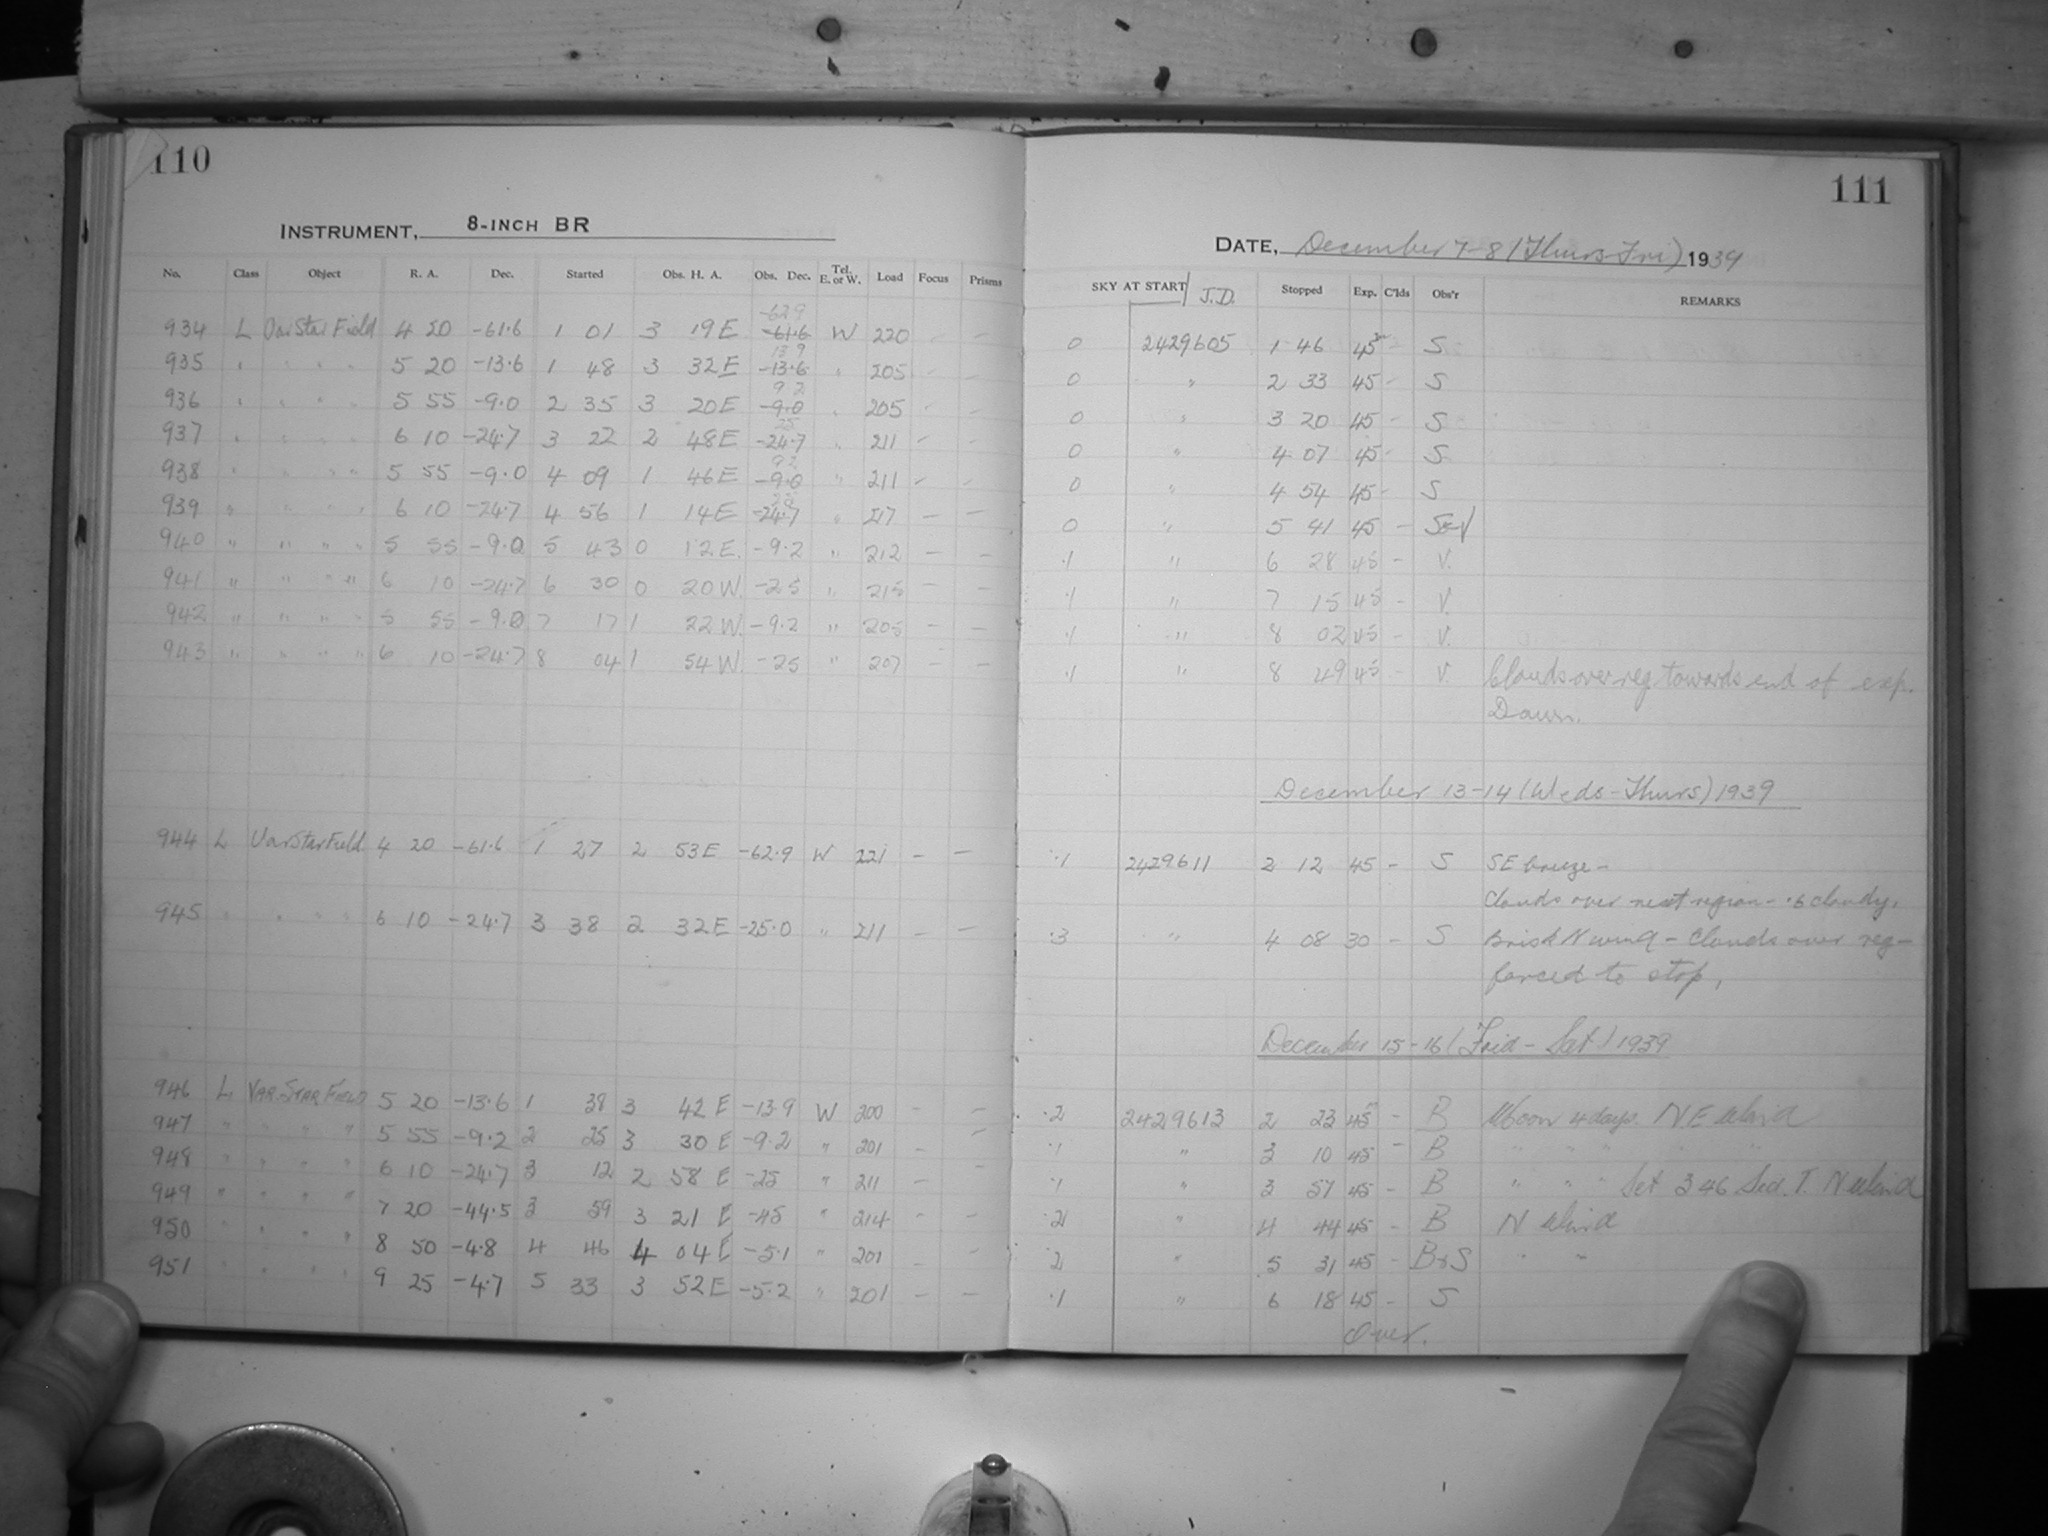 110
INSTRUMENT, 8-INCH BR
No. Class Object R. A. Dec. Started Obs. H. A. Obs. Dec. Tel. E. or W. Load Focus Prisms
934 L Var Star Field 4 20 -61.6 1 01 3 19 E -62.9 -61.6 W 220 - -
935 " " " " 5 20 -13.6 1 48 3 32 E 13.9 -13.6 " 205 - -
936 " " " " 5 55 -9.0 2 35 3 20 E 9.2 -9.0 " 205 - -
937 " " " " 6 10 -24.7 3 22 2 48 E 25 -24.7 " 211 - -
938 " " " " 5 55 -9.0 4 09 1 46 E 9.2 -9.0 " 211 - -
939 " " " " 6 10 -24.7 4 56 1 14 E 25 -24.7 " 217 - -
940 " " " " 5 55 -9.0 5 43 0 12 E. -9.2 " 212 - -
941 " " " " 6 10 -24.7 6 30 0 20 W. -25 " 215 - -
942 " " " " 5 55 -9.0 7 17 1 22 W. -9.2 " 205 - -
943 " " " " 6 10 -24.7 8 04 1 54 W. -25 " 207 - -
944 L Var Star Field 4 20 -61.6 1 27 2 53 E -62.9 W 221 - -
945 " " " " 6 10 -24.7 3 38 2 32 E -25.0 " 211 - -
946 L VAR. STAR FIELD 5 20 -13.6 1 38 3 42 E -13.9 W 200 - -
947 " " " " 5 55 -9.2 2 25 3 30 E -9.2 " 201 - -
948 " " " " 6 10 -24.7 3 12 2 58 E -25 " 211 - -
949 " " " " 7 20 -44.5 3 59 3 21 E -45 " 214 - -
950 " " " " 8 50 -4.8 4 46 4 04 E -5.1 " 201 - -
951 " " " " 9 25 -4.7 5 33 3 52 E -5.2 " 201 - -
111
DATE, December 7-8 (Thurs-Fri) 1939
SKY AT START J.D. Stopped Exp. C'lds Obs'r REMARKS
0 2429605 1 46 45 - S
0 " 2 33 45 - S
0 " 3 20 45 - S
0 " 4 07 45 - S
0 " 4 54 45 - S
0 " 5 41 45 - S&V
.1 " 6 28 45 - V.
.1 " 7 15 45 - V.
.1 " 8 02 45 - V.
.1 " 8 49 45 - V. Clouds over reg. towards end of exp.
Dawn.
December 13-14 (Weds-Thurs) 1939
.1 2429611 2 12 45 - S SE breeze -
Clouds over next region - .6 cloudy.
.3 " 4 08 30 - S Brisk N wind - Clouds over reg -
forced to stop.
December 15-16 (Frid - Sat) 1939
.2 2429613 2 23 45 - B Moon 4 days. N E Wind
.1 " 3 10 45 - B " " " " "
.1 " 3 57 45 - B " " " Set 3 46 Sid. T. N Wind
.2 " 4 44 45 - B N Wind
.2 " 5 31 45 - B & S " "
.1 " 6 18 45 - S
Over.